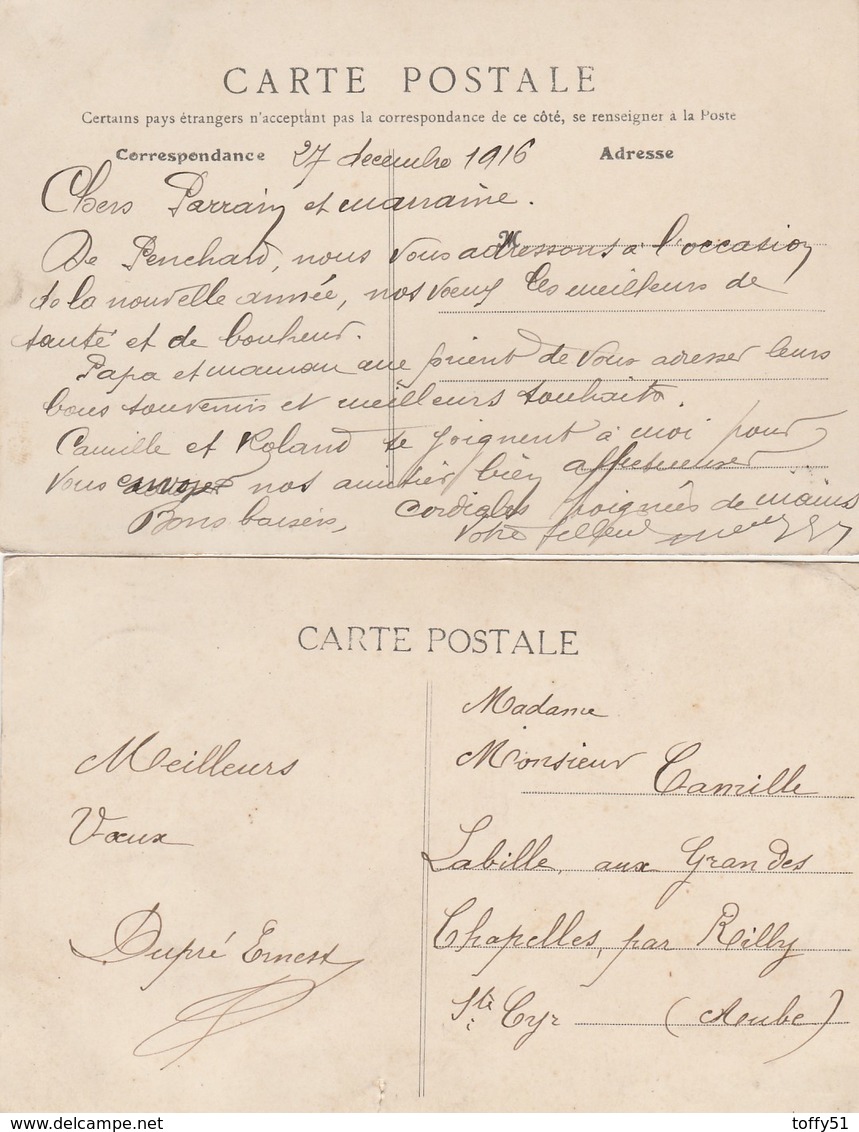 CARTE POSTALE
Certains pays étrangers n'acceptant pas la correspondance de ce côté, se renseigner à la Poste
Correspondance 27 decembre 1916 Adresse
Chers Parrain et marraine.
M
De Penchard, nous vous adressons à l'occasion
de la nouvelle année, nos vœux les meilleurs de
santé et de bonheur.
Papa et maman me prient de vous adresser leurs
bons souvenirs et meilleurs souhaits.
Camille et Roland se joignent à moi pour
vous envoyer nos amitiés bien affectueuses
Bons baisers, cordiales poignées de mains
Votre filleul
CARTE POSTALE
Meilleurs
Vœux
Dupré Ernest
Madame
Monsieur Camille
Labille, aux Grandes
Chapelles, par Rilly
Ste Cyr (Aube)
toffy51